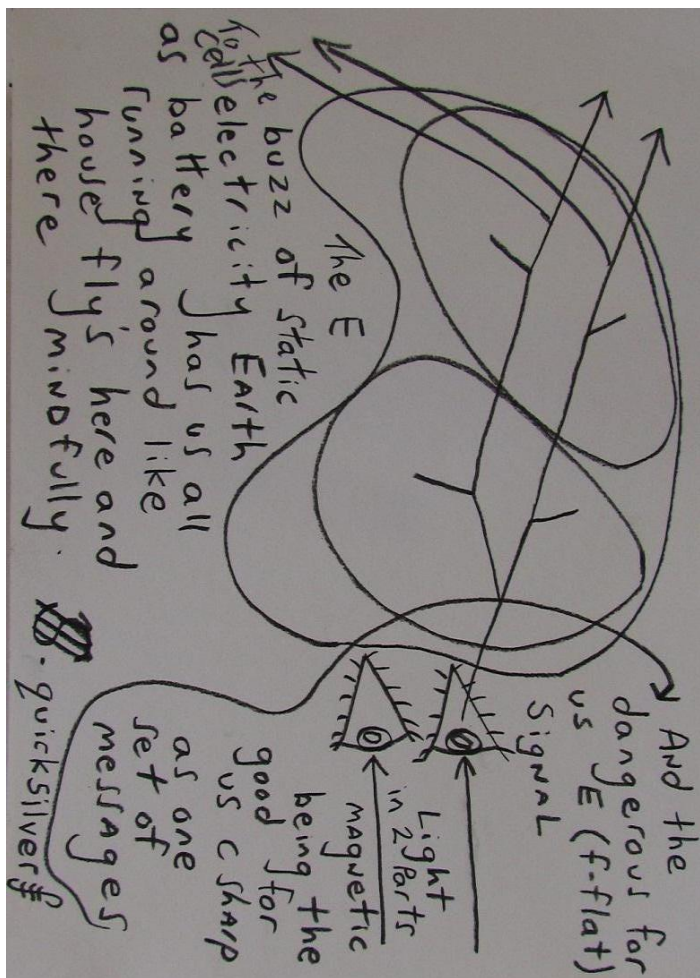 And the
dangerous for
us E (f-flat)
SIGNAL
Light
in 2 Parts
MAGNETIC
being the
good for
us C sharp
as one
set of
messages
The E
the buzz of static
To the
cells electricity EArth
as battery has us all
running around like
house fly's here and
there MINDfully.
. quicksilver